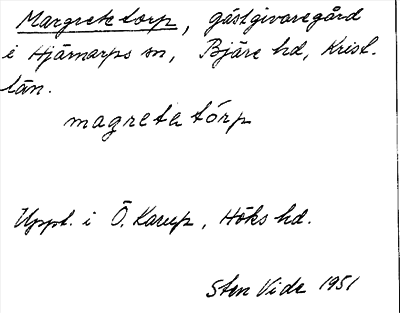 Margretetorp, gästgivaregård
i Hjärnarps sn, Bjäre hd, Krist.
län.
magretatórp
Uppt. i Ö. Karup, Höks hd.
Sten Vide 1951